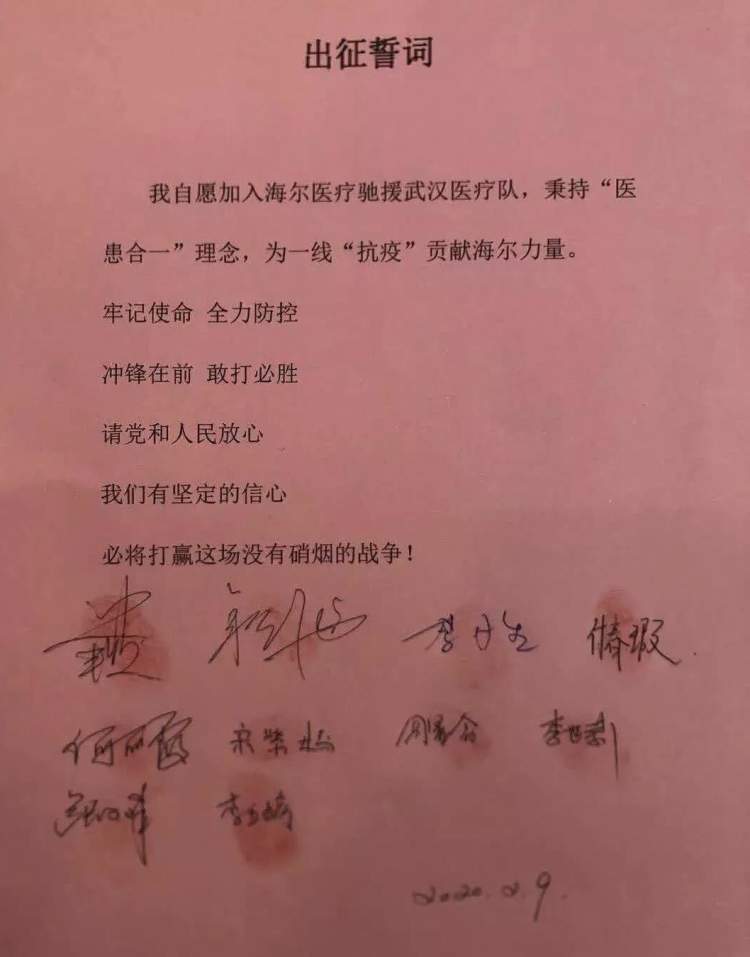 出征誓词
我自愿加入海尔医疗驰援武汉医疗队，秉持“医
患合一”理念，为一线“抗疫”贡献海尔力量。
牢记使命 全力防控
冲锋在前 敢打必胜
请党和人民放心
我们有坚定的信心
必将打赢这场没有硝烟的战争！
2020.2.9.